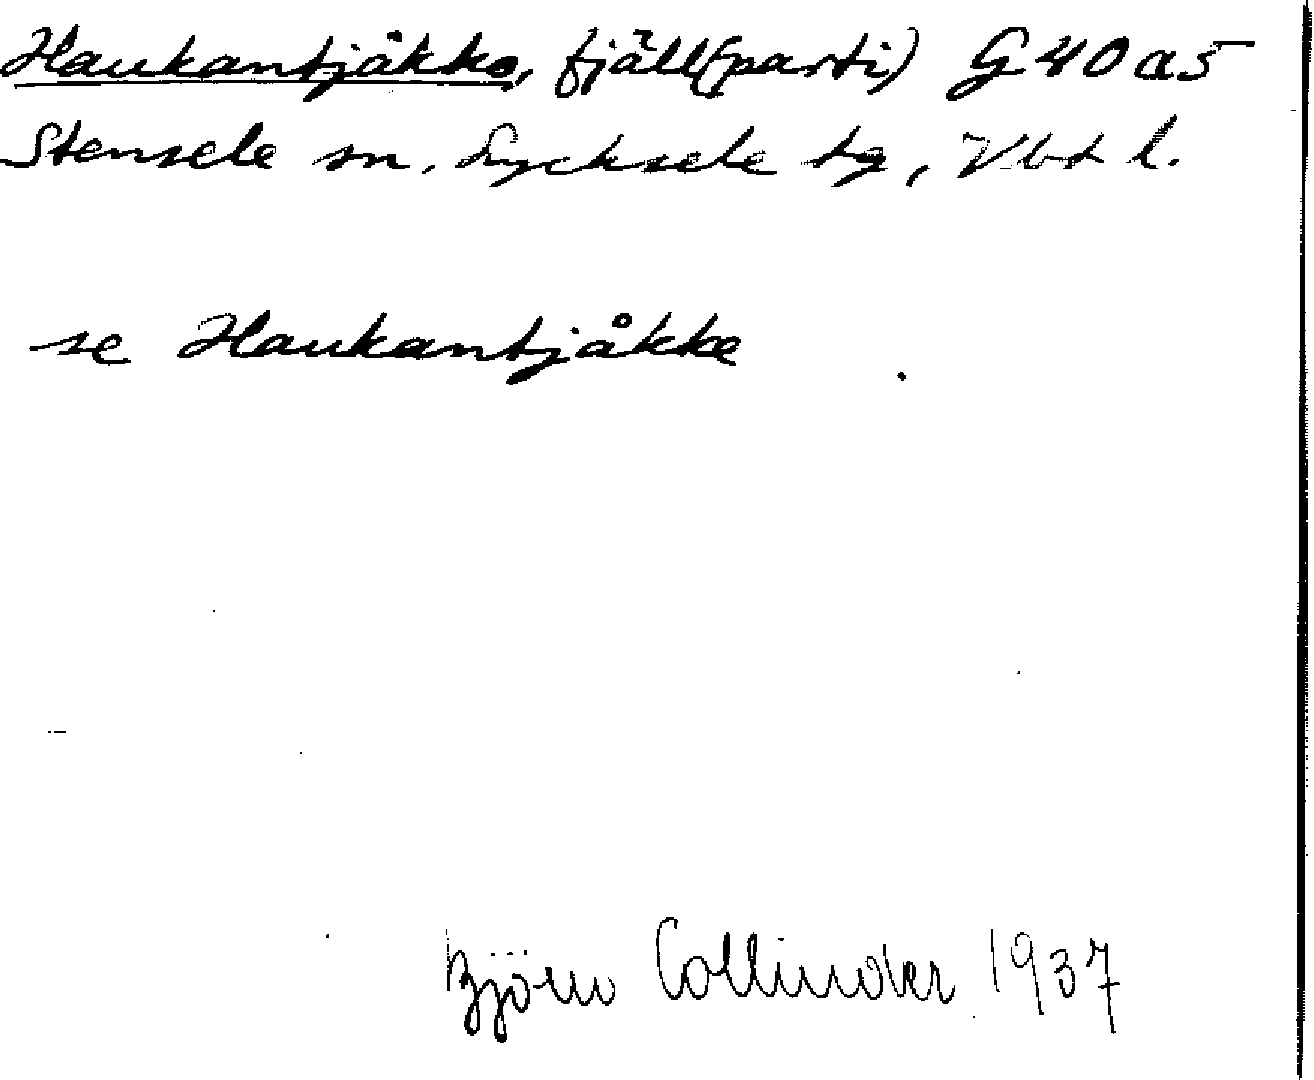 Haukantjåkko, fjäll(parti) G 40 a5
Stensele sn. Lycksele tg, Vbt l.
se Haukantjåkke
Björn Collinder 1937